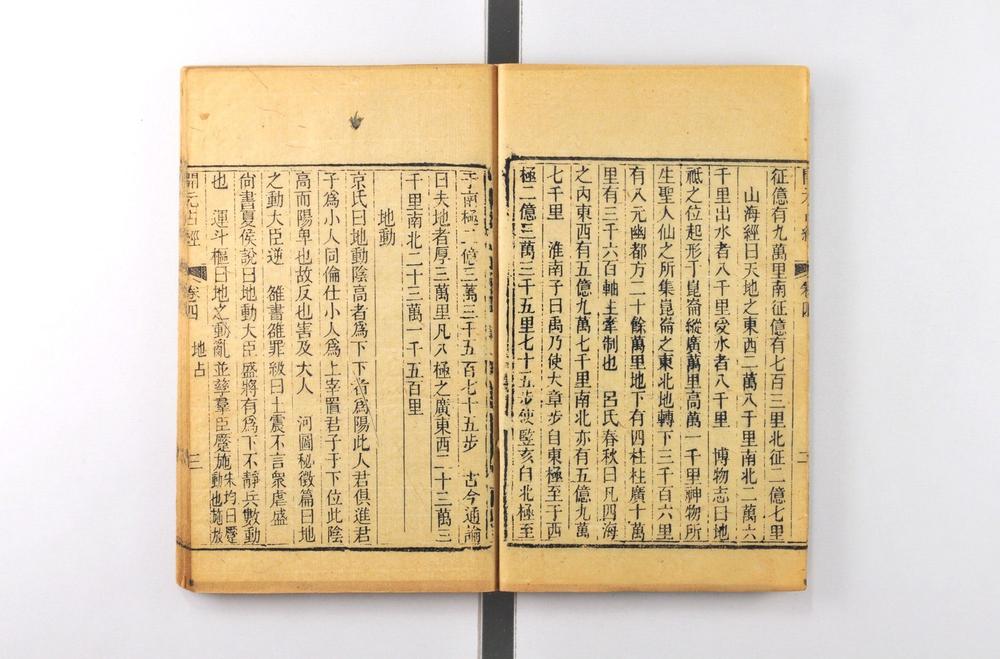 征億有九萬里南征億有七百三里北征二億七里
山海經曰天地之東西二萬八千里南北二萬六
千里出水者八千里受水者八千里　博物志曰地
祇之位起形于崑崙縱廣萬里高萬一千里神物所
生聖人仙之所集崑崙之東北地轉下三千百六里
有八元幽都方二十餘萬里地下有四柱柱廣十萬
里有三千六百軸主牽制也　呂氏春秋曰凡四海
之內東西有五億九萬七千里南北亦有五億九萬
七千里　淮南子曰禹乃使大章步自東極至于西
極二億三萬三千五里七十五步使竪亥自北極至
于南極二億三萬三千五百七十五步　古今通論
曰夫地者厚三萬里凡八極之廣東西二十三萬三
千里南北二十三萬一千五百里
地動
京氏曰地動陰高者爲下下者爲陽此人君俱進君
子爲小人同倫仕小人爲上宰置君子于下位此陰
高而陽卑也故反也害及大人　河圖秘徵篇曰地
之動大臣逆　雒書雒罪級曰土震不言衆虐盛
尙書夏侯說曰地動大臣盛將有爲下不靜兵數動
也　運斗樞曰地之動亂並孽羣臣蹙施朱均曰蹙動也施放
開元占經
卷四
地占
三